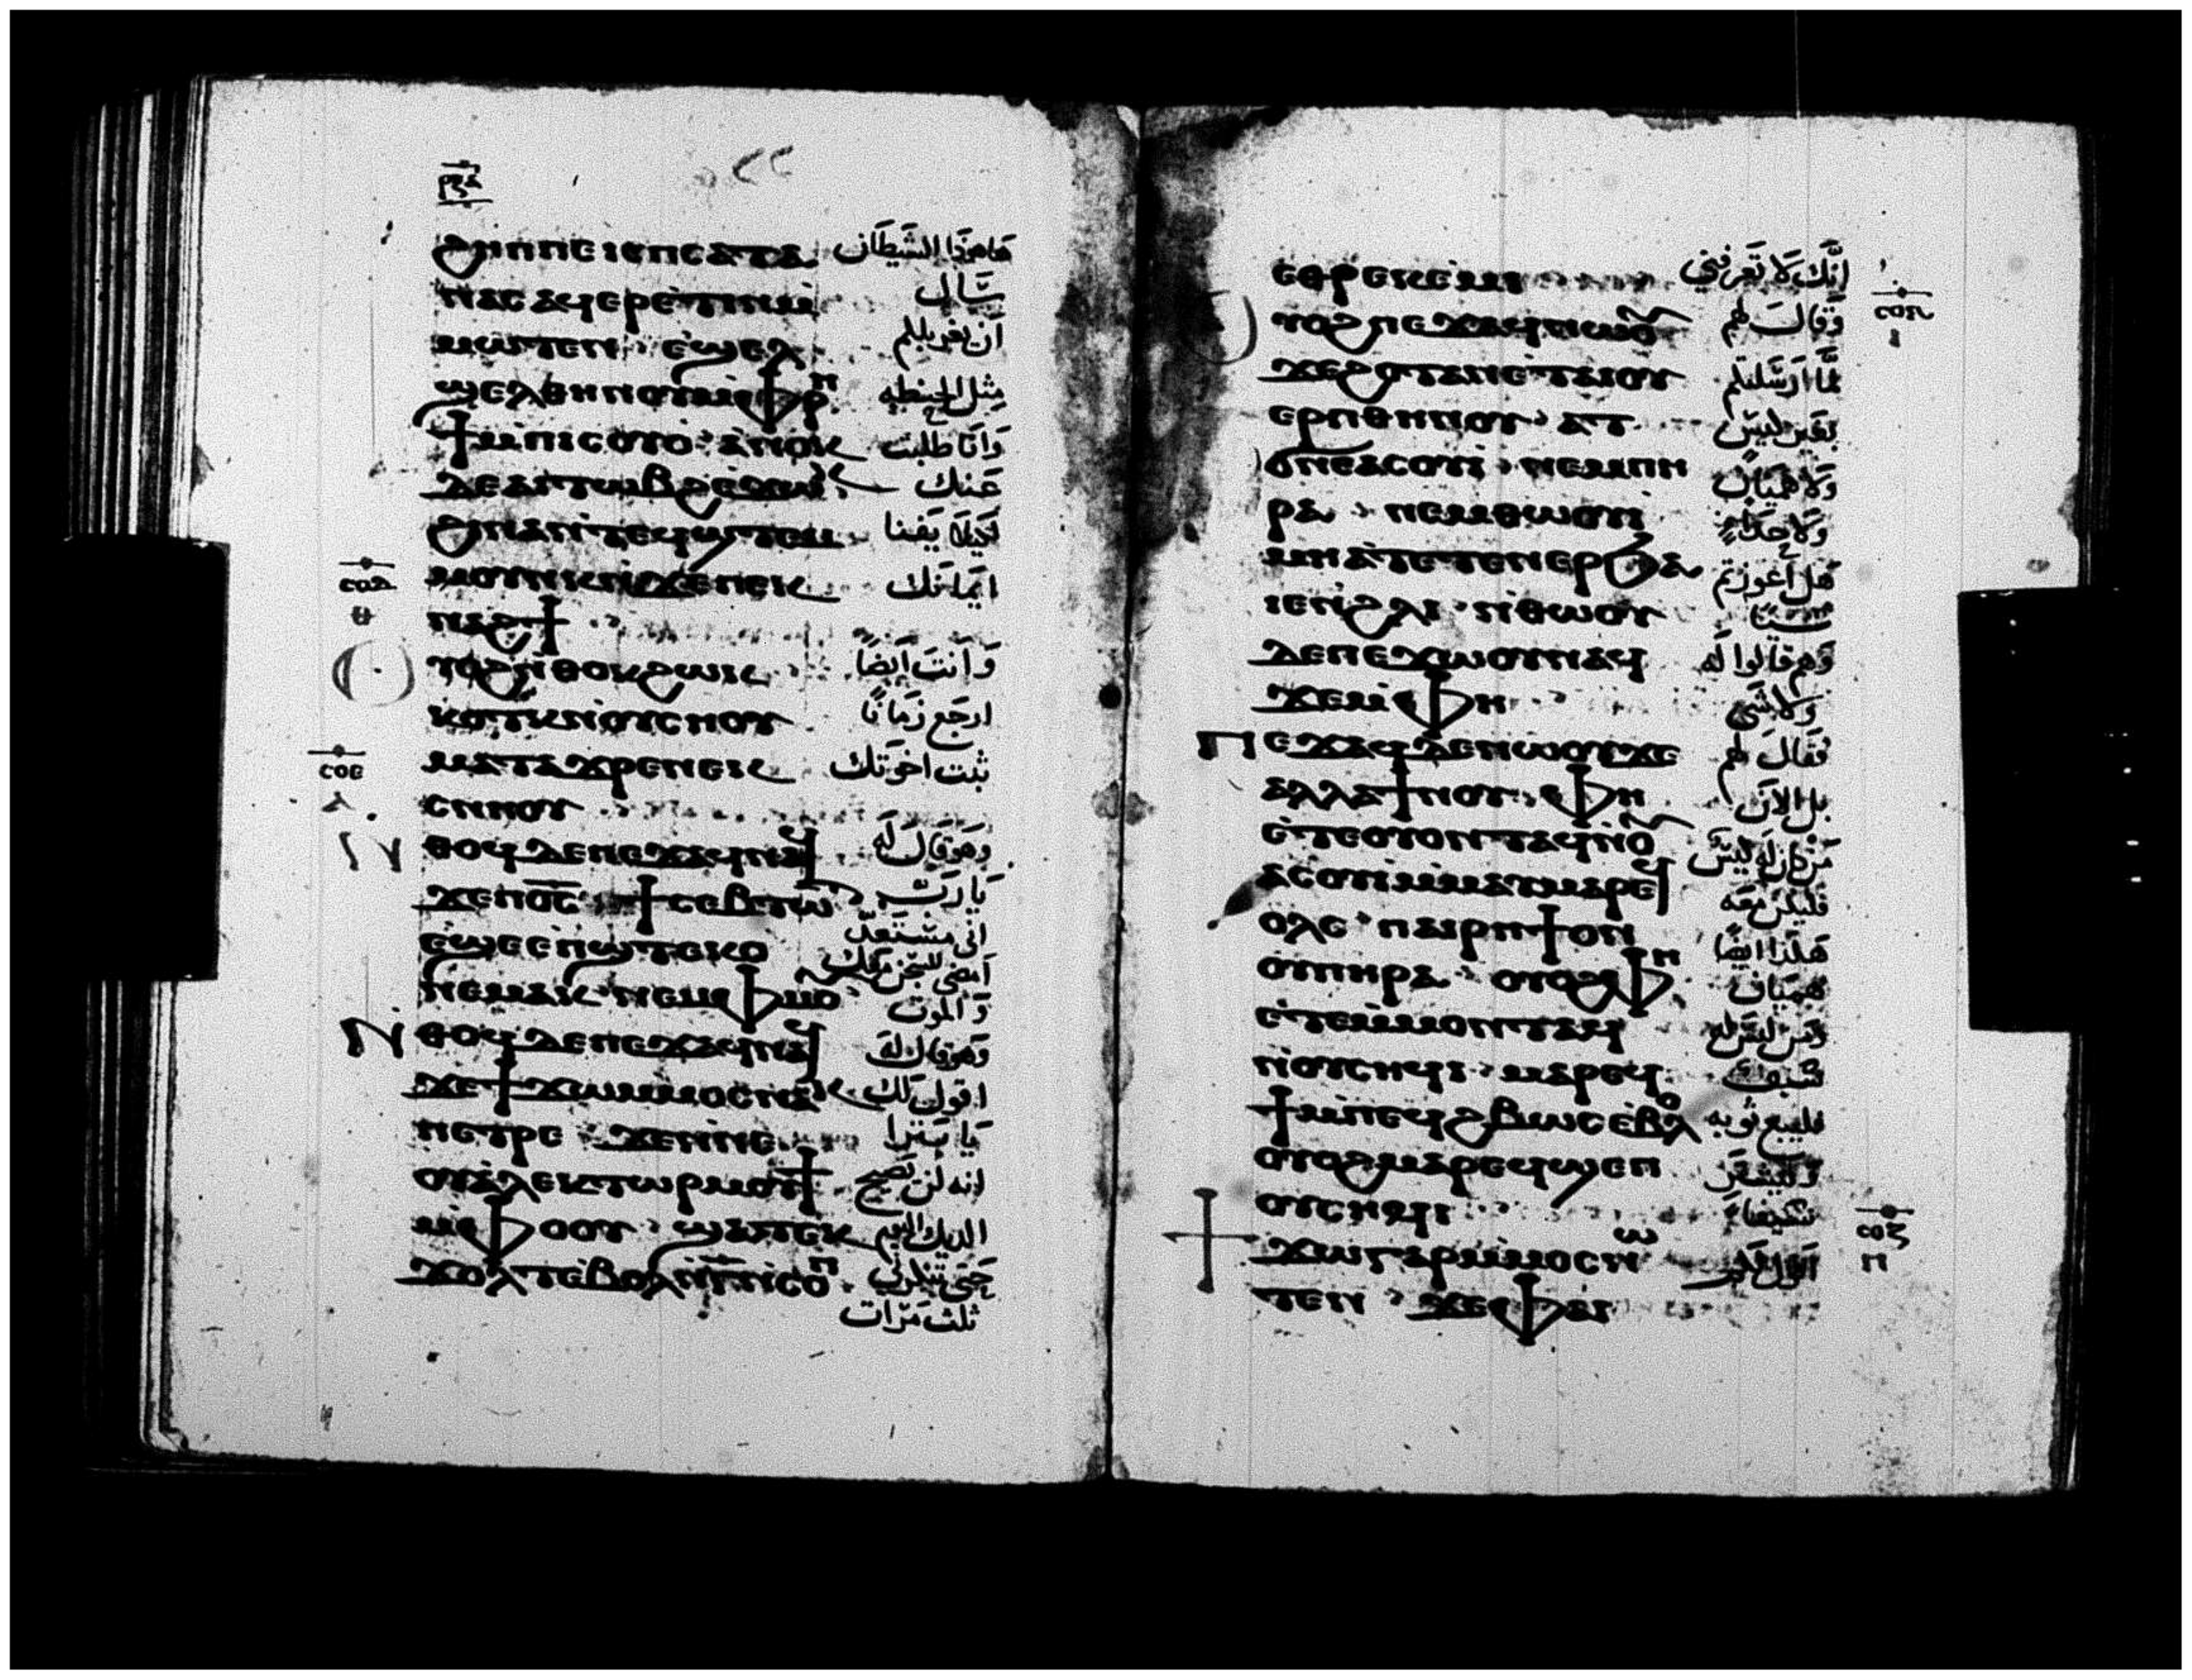 ϩⲏⲡⲡⲉ ⲓⲥ ⲡⲥⲁⲧⲁ هاهوذا الشيطان
ⲛⲁⲥ ⲁϥⲉⲣⲉⲧⲓⲛ ⲙ̀ سال
ⲙⲱⲧⲉⲛ · ⲉ̀ϣⲉⲗ ان يغربلكم
ϣⲉⲗ ⲑⲏⲛⲟⲩ ⲙ̀ⲫⲣⲏ مثل الحنطه
ϯ ⲙ̀ⲡⲓⲥⲟⲩⲟ · ⲁ̀ⲛⲟⲕ وانا طلبت
ⲇⲉ ⲁⲓⲧⲱⲃϩ ⲉ̀ϫⲱⲕ عنك
ϩⲓⲛⲁ ⲛ̀ⲧⲉϥϣⲧⲉⲙ لكيلا يفنا
ⲙⲟⲩⲛⲕ ⲛ̀ϫⲉ ⲡⲉⲕ ايمانك
ⲛⲁϩϯ
ⲟⲩⲟϩ ⲛ̀ⲑⲟⲕ ϩⲱⲕ وانت ايضًا
ⲕⲟⲧⲕ ⲛ̀ⲟⲩⲥⲏⲟⲩ ارجع زمانًا
ⲙⲁⲧⲁϫⲣⲉ ⲛⲉⲕ ثبت اخوتك
ⲥⲛⲏⲟⲩ
ⲛ̀ⲑⲟϥ ⲇⲉ ⲡⲉϫⲁϥ ⲛⲁϥ وهو قال له
ϫⲉ ⲡⲟ̅ⲥ̅ ϯⲥⲉⲃⲧⲱⲧ يا رب
ⲉ̀ϣⲉ ⲉ̀ⲡϣⲧⲉⲕⲟ انى مستعد
ⲛⲉⲙⲁⲕ ⲛⲉⲙ ⲉ̀ⲫⲙⲟⲩ امضى للسجن معك والموت
ⲛ̀ⲑⲟϥ ⲇⲉ ⲡⲉϫⲁϥ ⲛⲁϥ وهو قال له
ϫⲉ ϯϫⲱ ⲙ̀ⲙⲟⲥ ⲛⲁⲕ اقول لك
ⲡⲉⲧⲣⲉ ϫⲉ ⲛⲛⲉ يا بترا
ⲟⲩⲁ̀ⲗⲉⲕⲧⲱⲣ ⲙⲟⲩϯ انه لن يصيح
ⲙ̀ⲫⲟⲟⲩ · ϣⲁⲧⲉⲕ الديك اليوم
ϫⲟⲗⲧ ⲉ̀ⲃⲟⲗ ⲛ̀ⲅ̅ ⲛ̀ⲥⲟⲡ حتى تنكرني
ثلث مرات
ⲉⲑⲣⲉⲕⲉⲙⲓ انك لا تعرفني
ⲟⲩⲟϩ ⲡⲉϫⲁϥ ⲛⲱⲟⲩ وقال لهم
ϫⲉ ϩⲟⲧⲁⲛ ⲉ̀ⲧⲁⲓⲟⲩ لما ارسلتكم
ⲉⲣⲡ ⲑⲏⲛⲟⲩ · ⲁⲧ بغير كيس
ϭⲛⲉ ⲁⲥⲟⲩⲓ · ⲛⲉⲙ ⲡⲏ ولا هميان
ⲣⲁ · ⲛⲉⲙ ⲑⲱⲟⲩⲓ̀ ولا حذاء
ⲙⲏ ⲁ̀ⲧⲉⲧⲉⲛⲉⲣϧⲁ هل اعوزتم
ⲓⲉ ⲛ̀ϩⲗⲓ · ⲛ̀ⲑⲱⲟⲩ شيئا
ⲇⲉ ⲡⲉϫⲱⲟⲩ ⲛⲁϥ وهم قالوا له
ϫⲉ ⲙ̀ⲫⲏ ولا شي
ⲡⲉϫⲁϥ ⲇⲉ ⲛⲱⲟⲩ ϫⲉ فقال لهم
ⲁⲗⲗⲁ ϯⲛⲟⲩ · ⲫⲏ بل الان
ⲉ̀ⲧⲉ ⲟⲩⲟⲛⲧⲁϥ ⲛ̀ⲟⲩ من له كيس
ⲁⲥⲟⲩⲓ̀ ⲙ̀ⲙⲁⲩ ⲙⲁⲣⲉϥ فليكن معه
ⲟⲗϥ · ⲡⲁⲓⲣⲏϯ ⲟⲛ هكذا ايضًا
ⲟⲩⲡⲏⲣⲁ · ⲟⲩⲟϩ ⲫⲏ هميان
ⲉ̀ⲧⲉ ⲙ̀ⲙⲟⲛⲧⲁϥ ومن ليس له
ⲛ̀ⲟⲩⲥⲏϥⲓ · ⲙⲁⲣⲉϥ سيف
ϯ ⲙ̀ⲡⲉϥϩⲃⲱⲥ ⲉ̀ⲃⲟⲗ فليبع ثوبه
ⲟⲩⲟϩ ⲙⲁⲣⲉϥϣⲉⲡ وليشتر
ⲟⲩⲥⲏϥⲓ سكينا
ϯϫⲱ ⲅⲁⲣ ⲙ̀ⲙⲟⲥ ⲛⲱ اقول لكم
ⲧⲉⲛ · ϫⲉ ⲫⲁⲓ